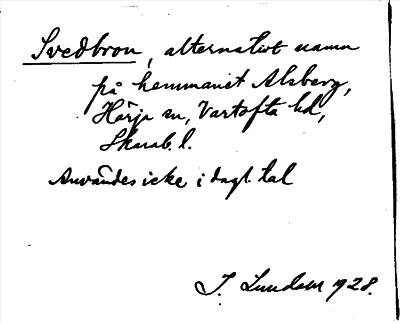 Svedbron, alternativt namn
på hemmanet Alsberg,
Härja sn, Vartofta hd,
Skarab. l.
Användes icke i dagl. tal
J. Lundahl 1928.